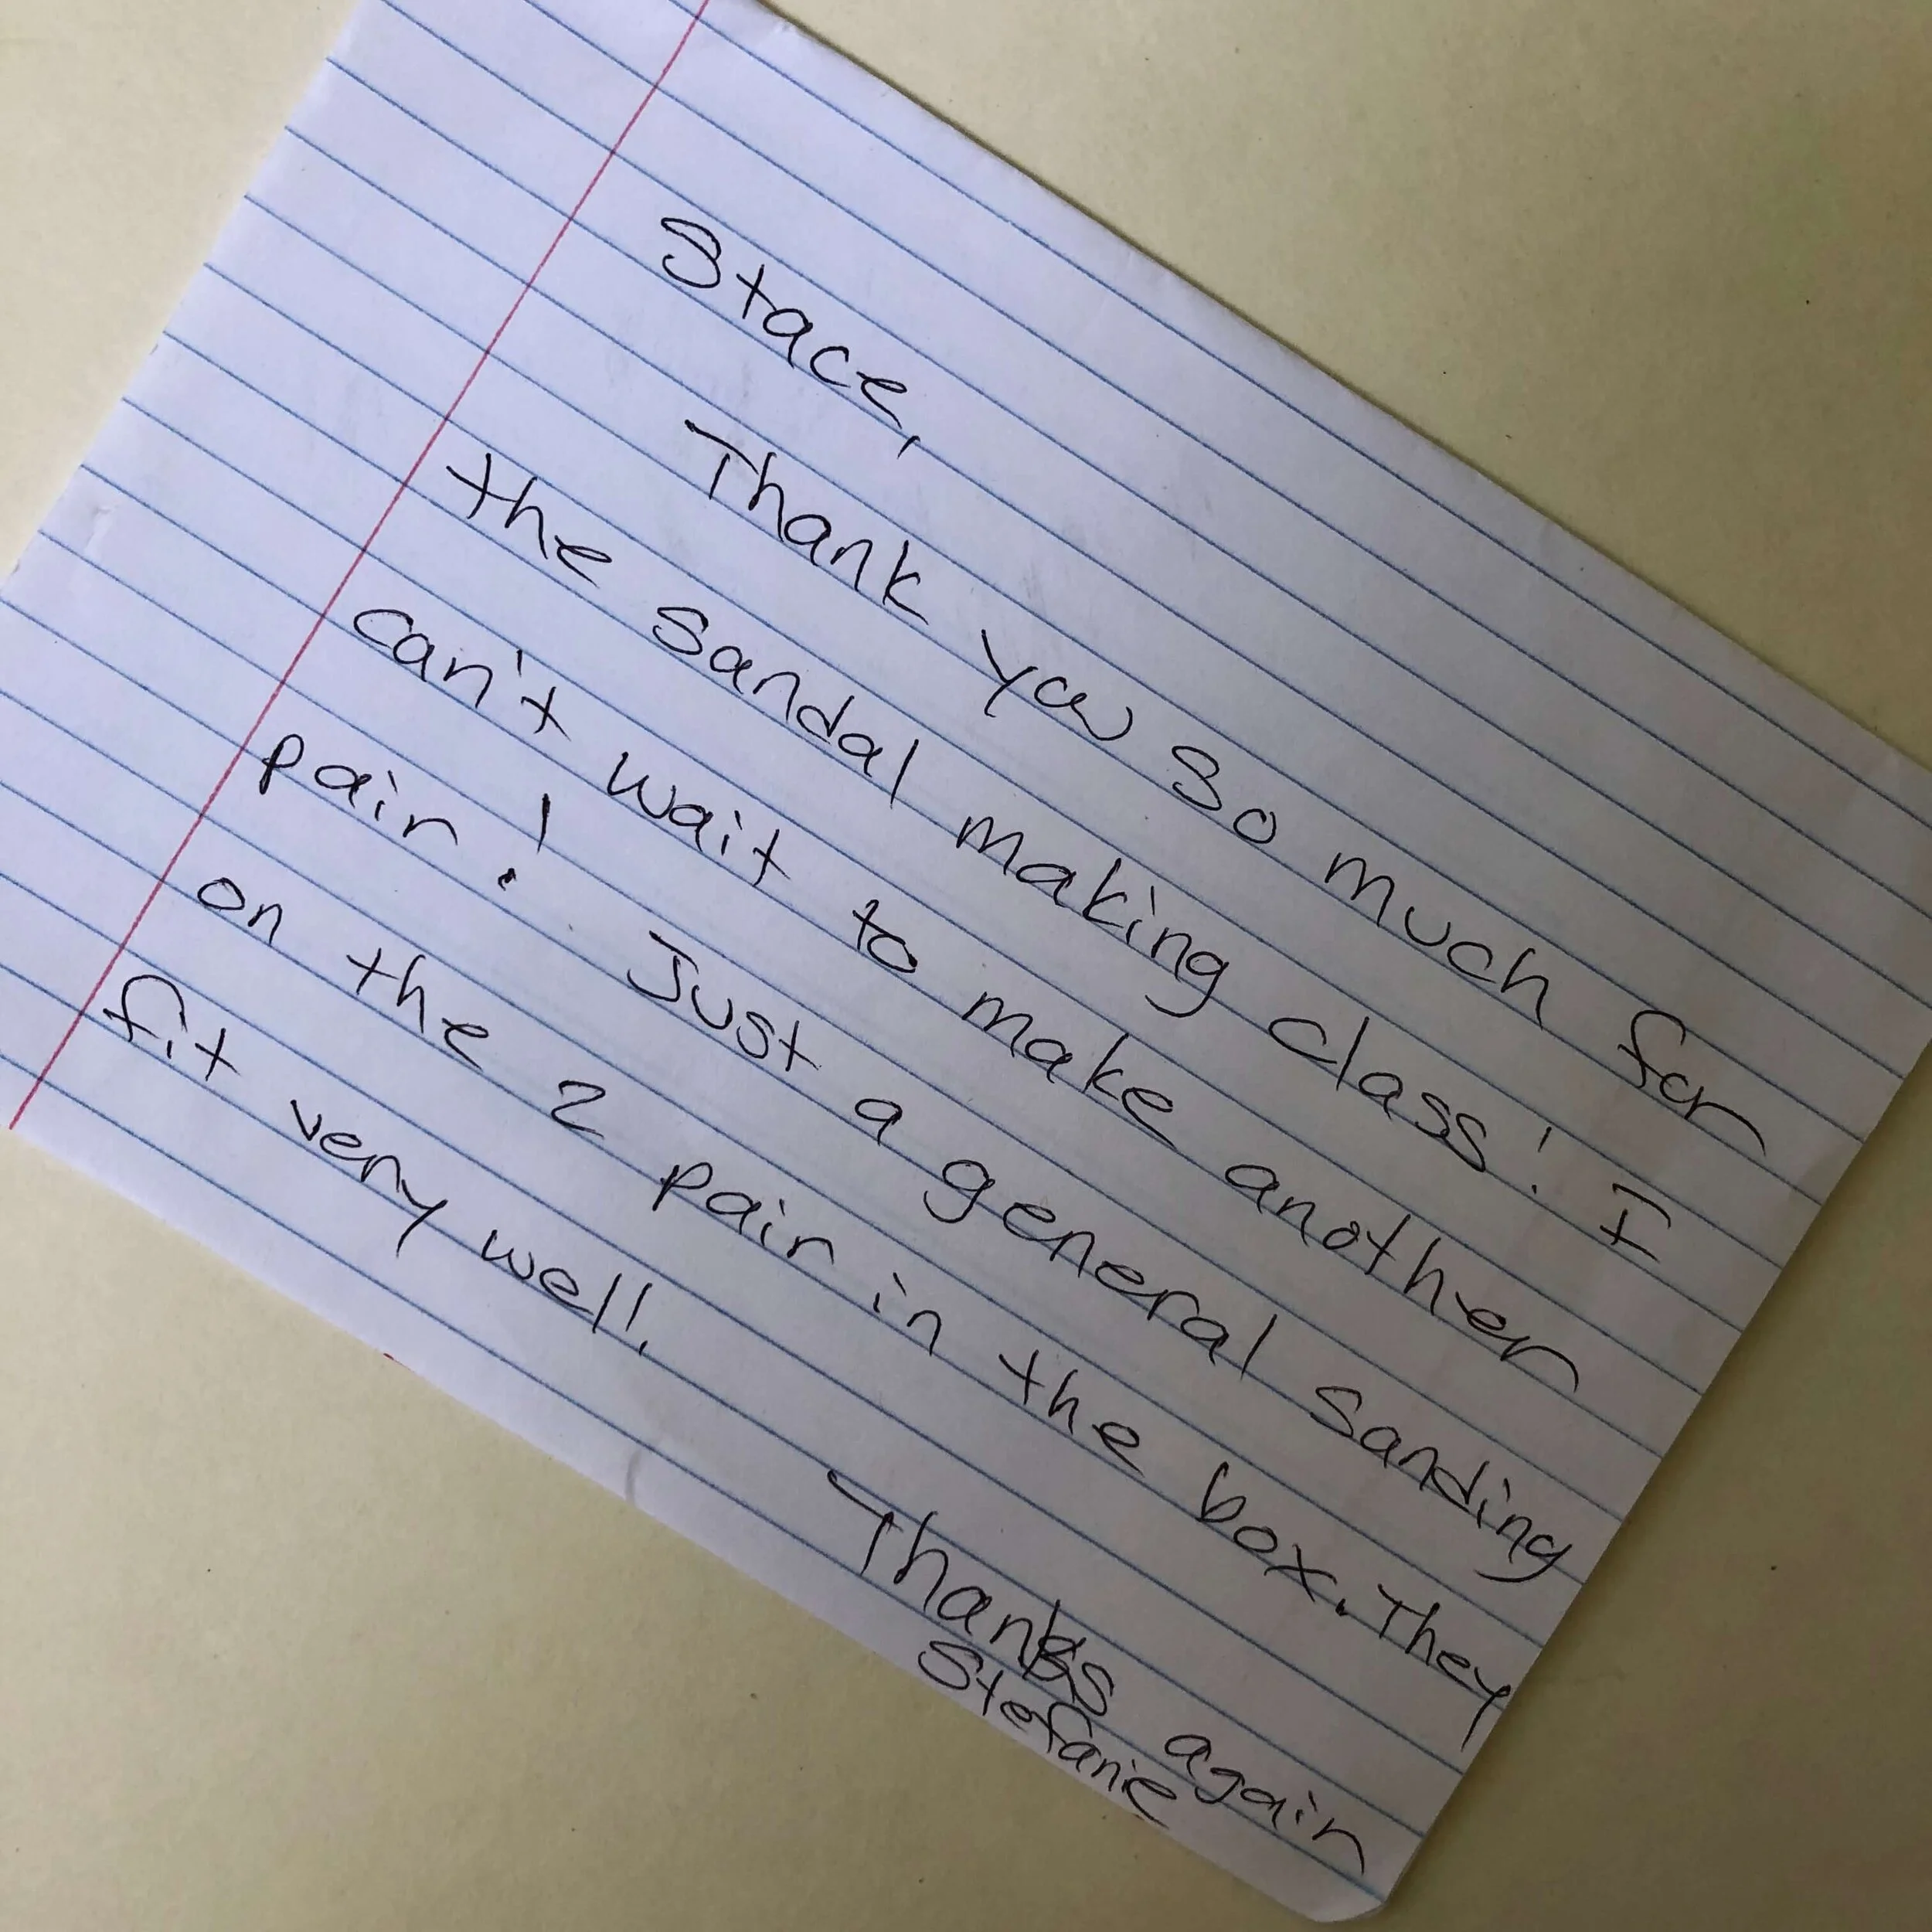 Stace,
Thank you so much for
the sandal making class! I
can't wait to make another
pair! Just a general sanding
on the 2 pair in the box. They
fit very well.
Thanks again
Stefanie